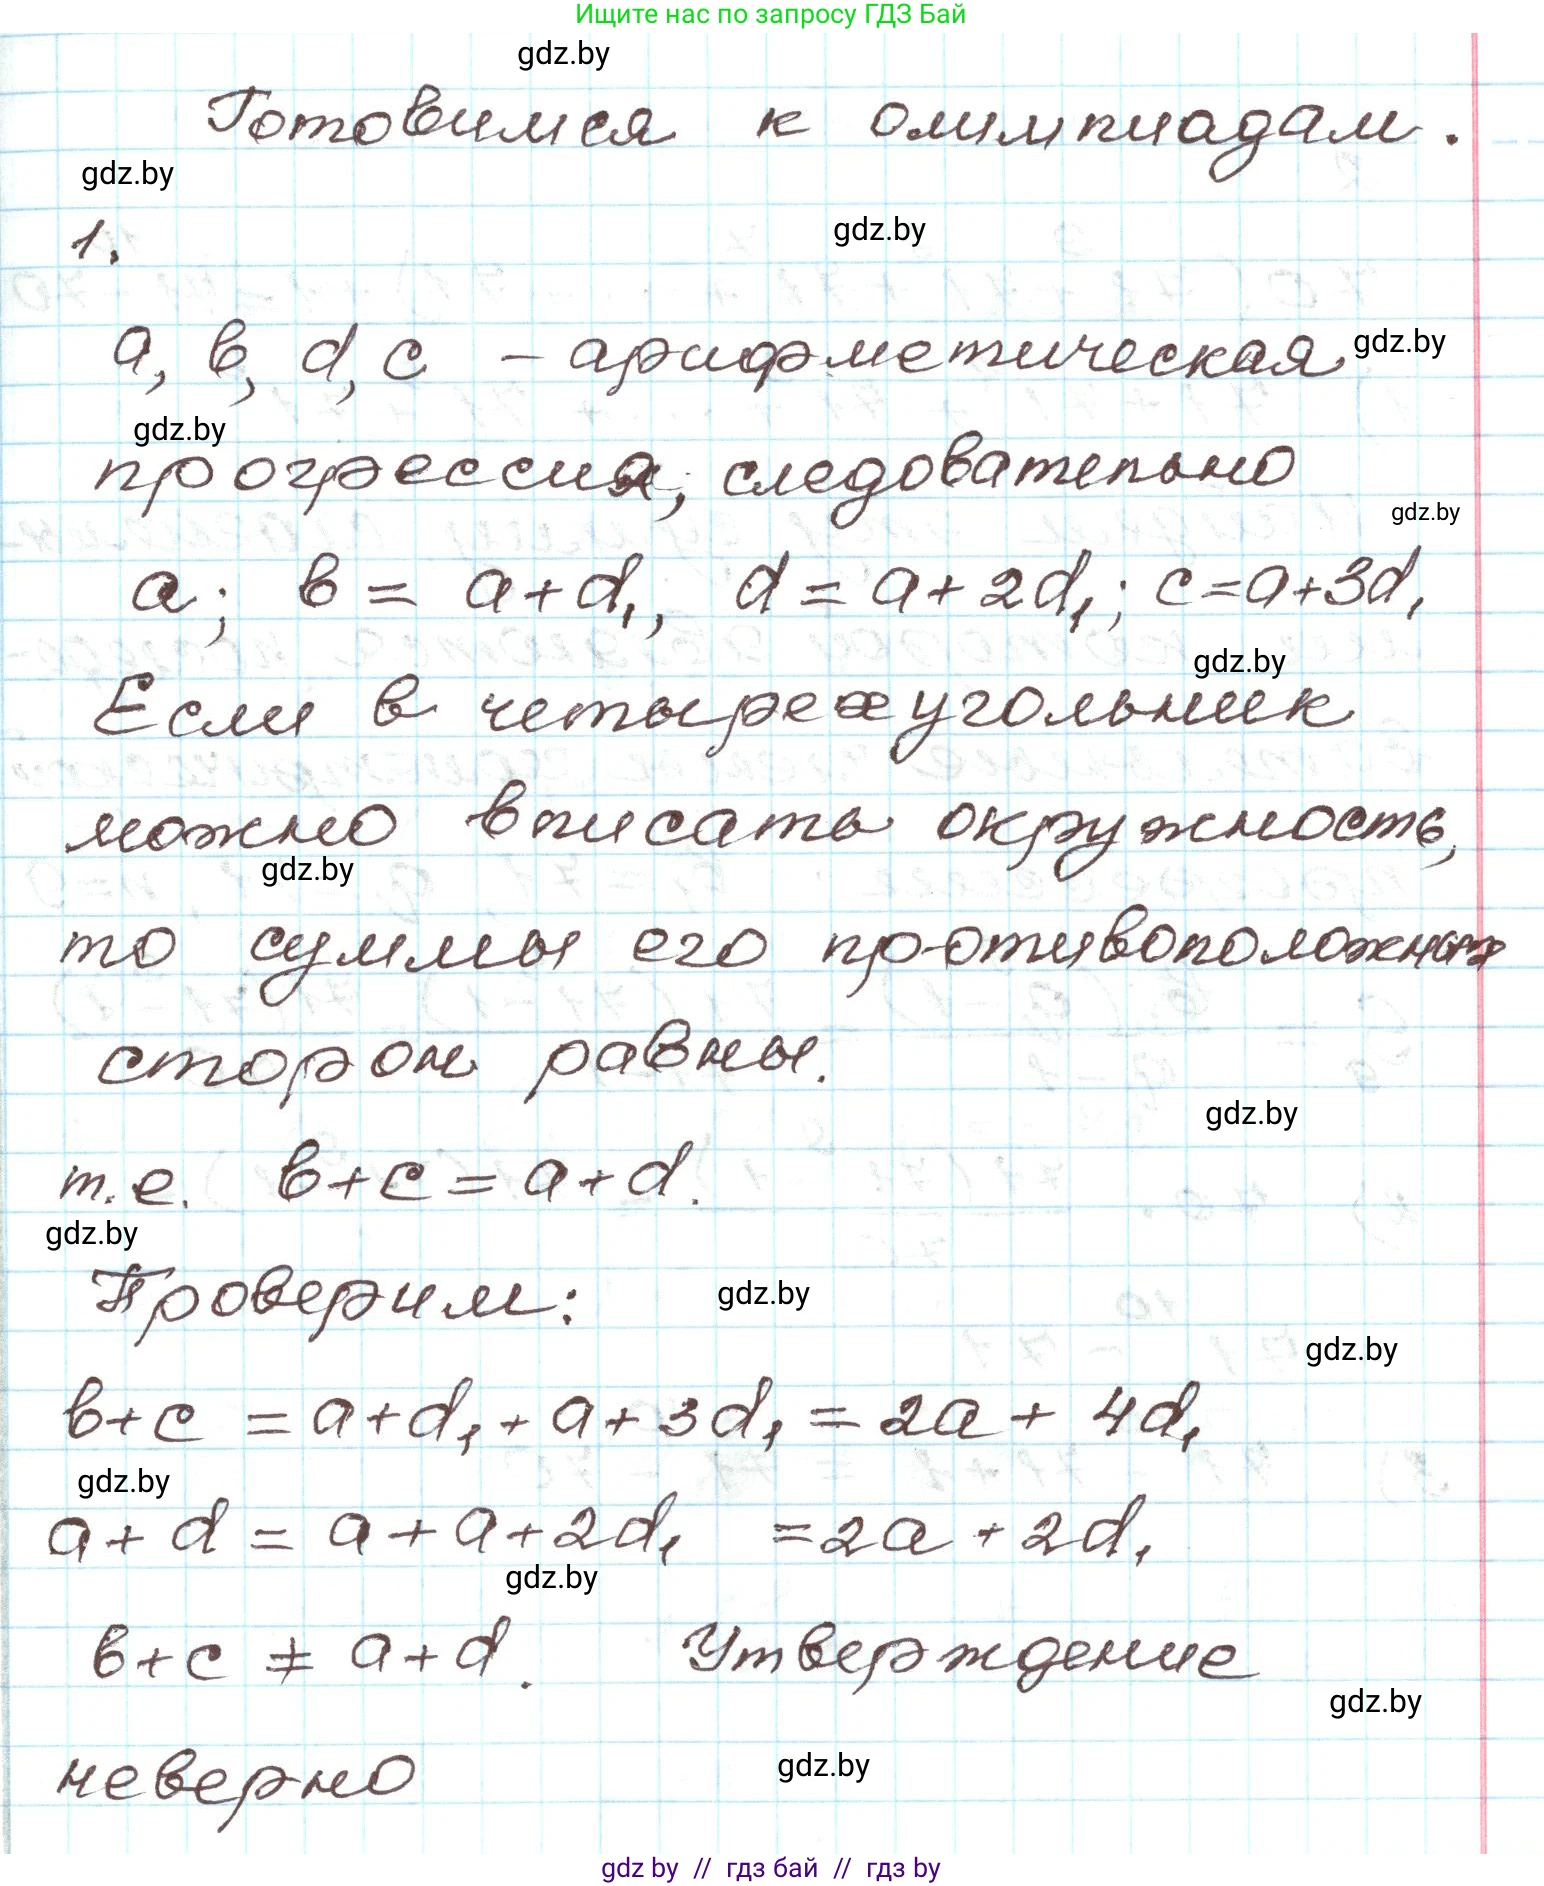 Ищите нас по запросу ГДЗ Бай
gdz.by
Готовимся к олимпиадам.
gdz.by
1.
gdz.by
a, b, d, c – арифметическая
gdz.by
gdz.by
прогрессия, следовательно
gdz.by
a; b = a+d₁, d = a+2d₁; c=a+3d₁
gdz.by
Если в четырехугольник
можно вписать окружность,
gdz.by
то суммы его противоположных
сторон равны.
gdz.by
т.е. b+c = a+d.
gdz.by
Проверим:
gdz.by
gdz.by
b+c = a+d₁+a+3d₁ = 2a + 4d₁
gdz.by
a+d = a+a+2d₁ =2a+2d₁
gdz.by
b+c ≠ a+d. Утверждение
gdz.by
неверно
gdz.by
gdz by // гдз бай // гдз by